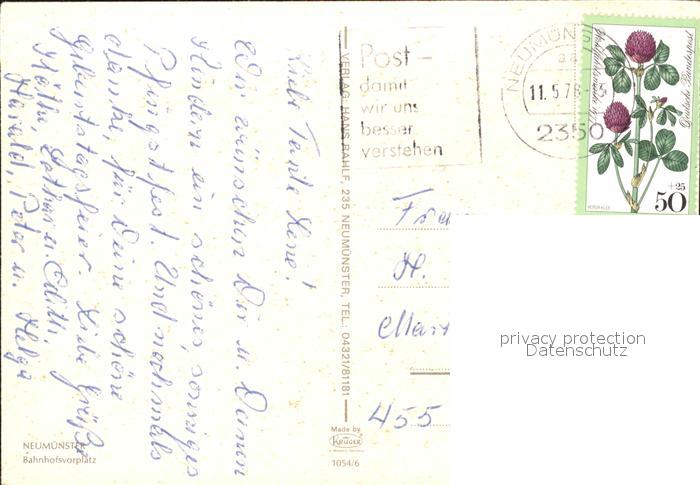 Liebe Tante Lene!
Wir wünschen Dir u. Deinen
Kindern ein schönes, sonniges
Pfingstfest. Und nochmals
danke für Deine schöne
Geburtstagsfeier. Liebe Grüße
Käthe, Lothar u. Edith,
Harald, Peter u. Helga
NEUMÜNSTER
Bahnhofsvorplatz
VERLAG: HANS RAHLF, 235 NEUMÜNSTER, TEL.: 04321/81181
Made by
KRÜGER
1054/6
Post –
damit
wir uns
besser
verstehen
NEUMÜNS
aa
11.5.78
2350
Deutsche Bundespost
ROTER KLEE
50
+25
H.
455
privacy protection
Datenschutz